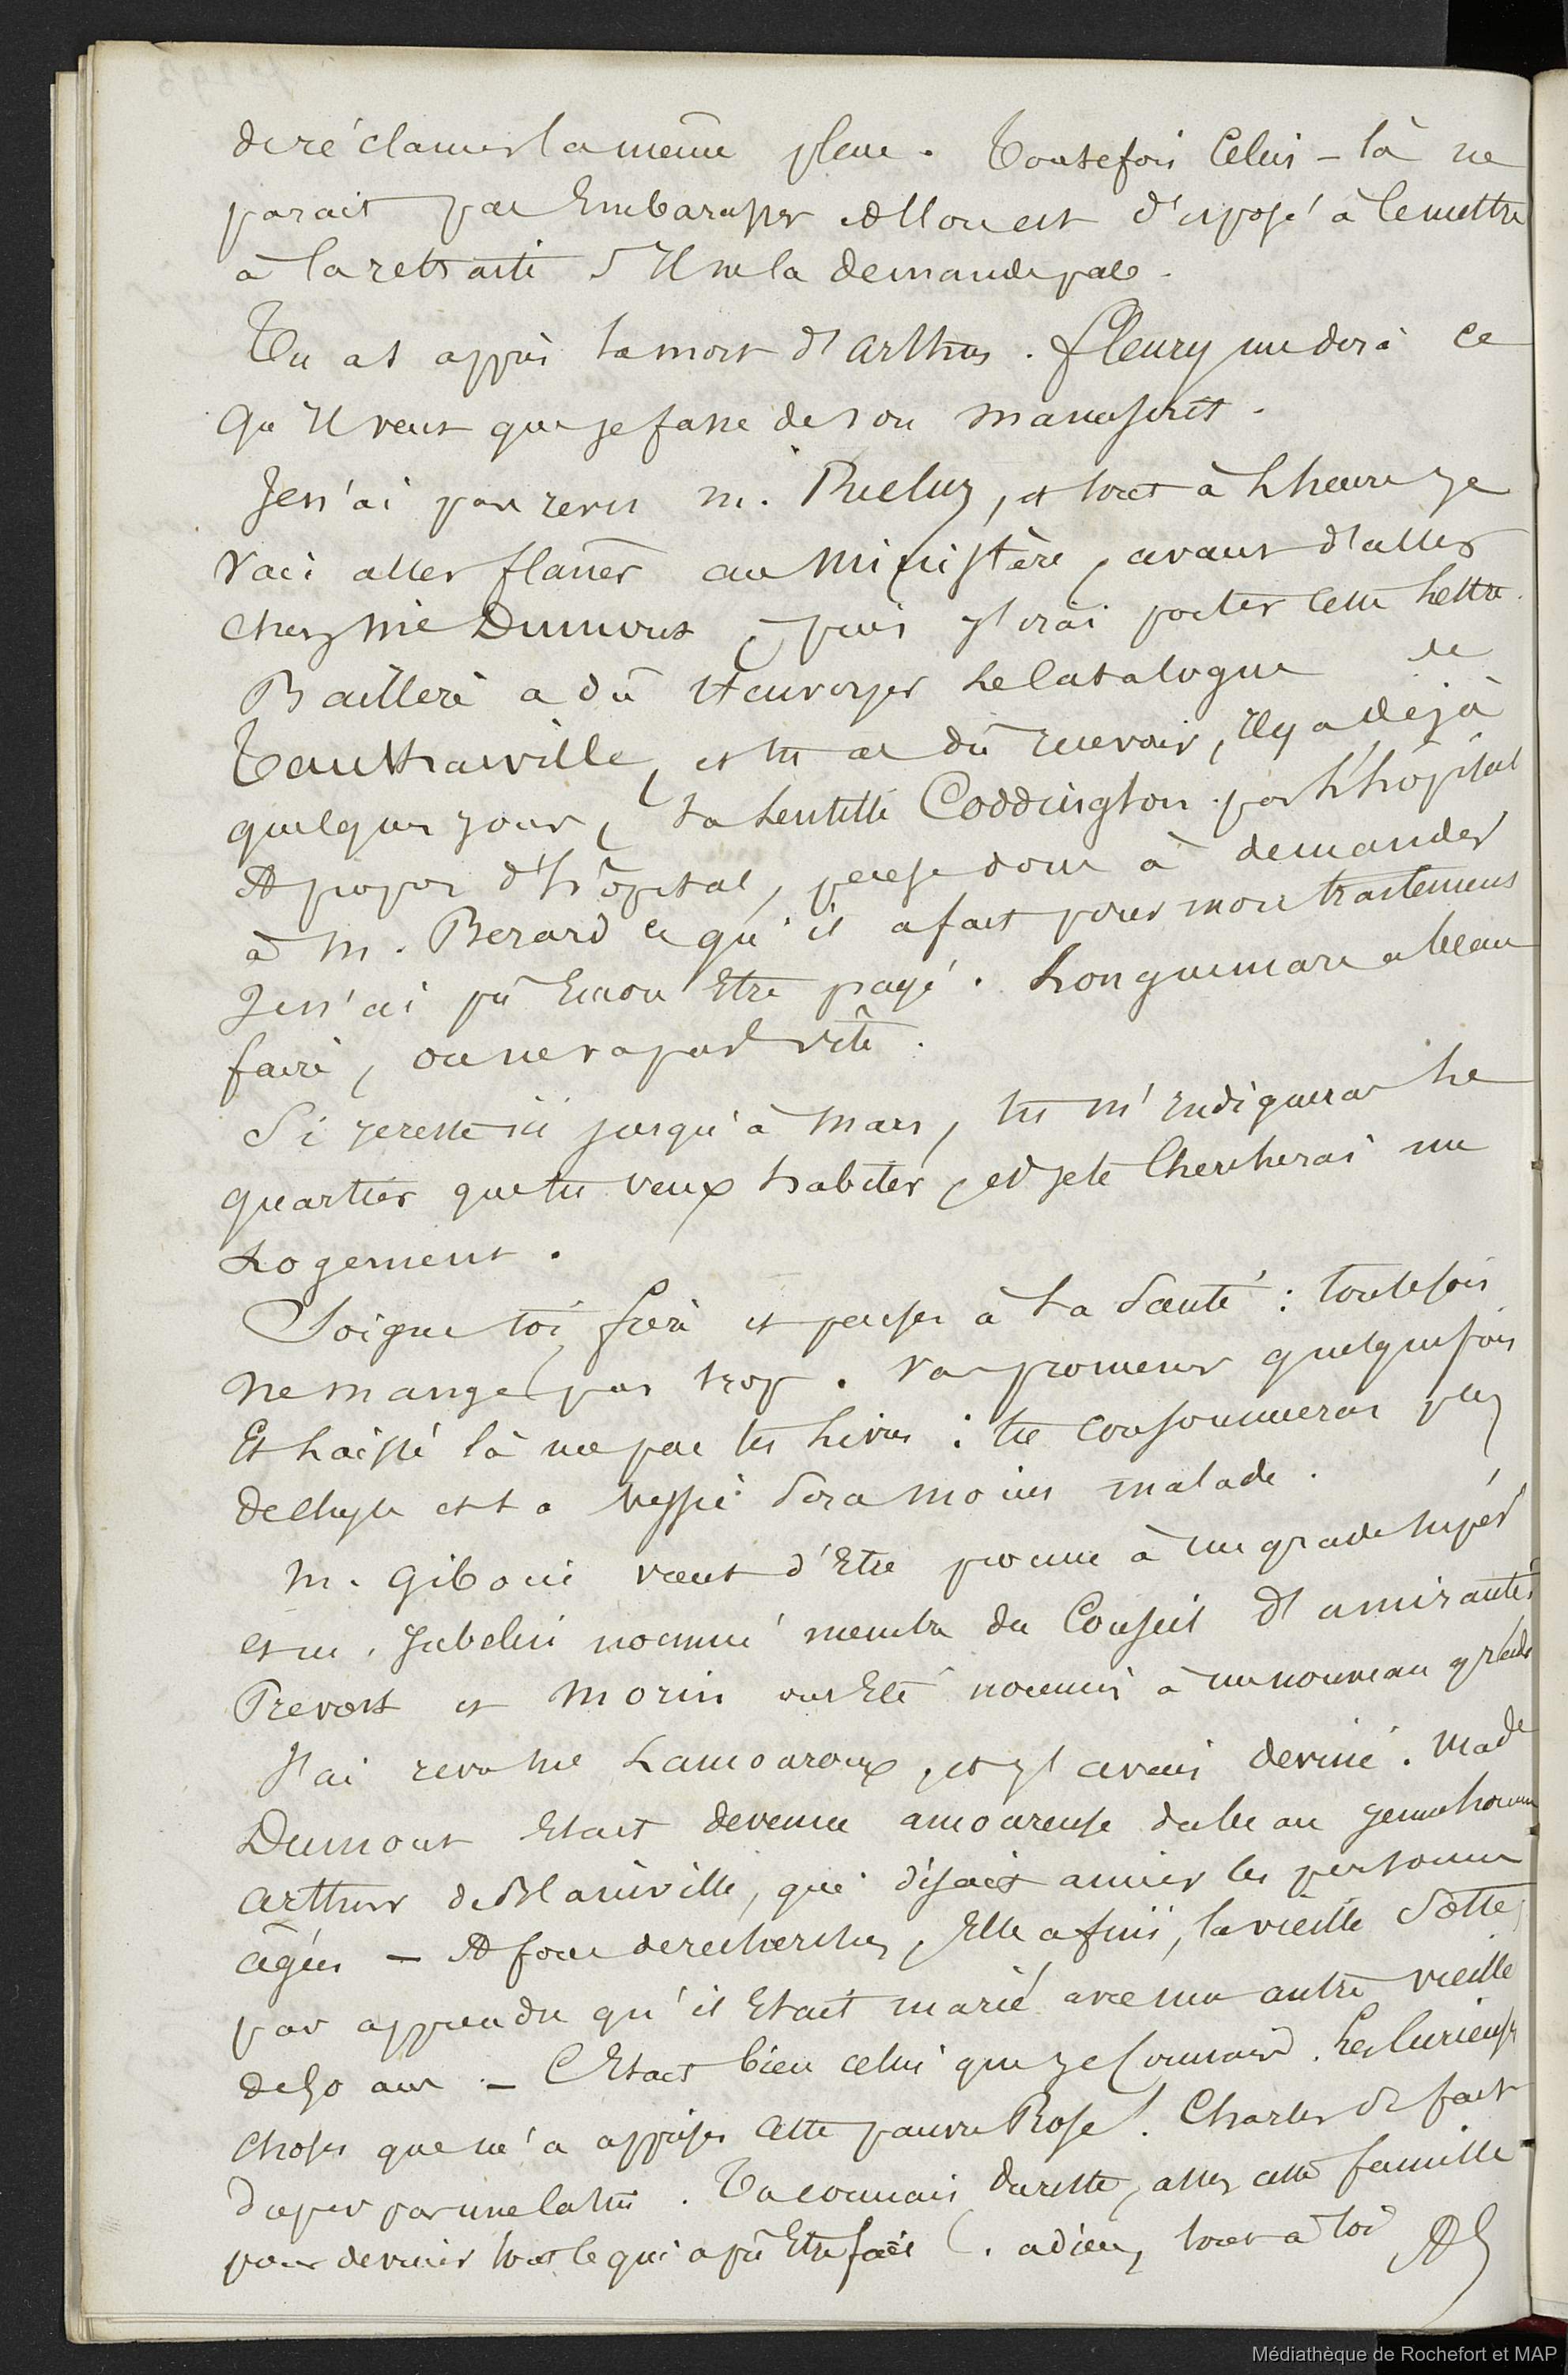 de réclamer la même place. Toutefois celui-là ne
parait pas Embarasser et l'on est disposé à le mettre
à la retraite s'Il ne la demande pas.
Tu as appris la mort d'arthus. fleury me dira ce
qu'Il veut que je fasse de son manuscrit.
Je n'ai pas revu m. , et tout à l'heure je
vais aller flâner au Ministère, avant d'aller
chez Me Dumont, puis j'irai porter cette lettre.
Baillere a dû t'envoyer le Catalogue de
Tanktraiville, et tu as dû recevoir, Il y a déjà
quelques jours, ta lentille Coddington par l'hôpital
A propos d'hôpital, pense donc à demander
à M. Berard ce qu'il a fait pour mon traitement
Je n'ai pû Encore Etre payé. Longuemare a beau
faire, on ne va pas vite.
Si je reste ici jusqu'à Mars, tu m'Indiqueras le
quartier que tu veux habiter, et je te Chercherai un
Logement.
Soigne toi, frère et penses à ta Santé : toutefois
ne mange pas trop. va promener quelquefois
Et laisse là un peu tes livres : tu consommeras plus
de chyle et ta vessie Sera moins malade.
M. Giboin vient d'Etre promu à un grade supér
et m. Jubelin nommé membre du Conseil d'amirauté
Prevost et Morin ont Eté nommés à un nouveau grade
J'ai revu Me Lamouroux, et j'avais deviné. Made
Dumont Etait devenue amoureuse du beau jeune homme
arthur de Blainville, qui disait aimer les personnes
âgées — A force de recherches, Elle a fini, la vieille Sotte,
par apprendre qu'il Etait marié avec une autre vieille
de 50 ans. — C'Etait bien celui que je Connais. Les Curieuses
choses que m'a apprises cette pauvre Rose! Charles S'e fait
duper par une catin. Tu connais du reste, assez cette famille
pour deviner tout ce qui a pû Etre fait. adieu, tout à toi